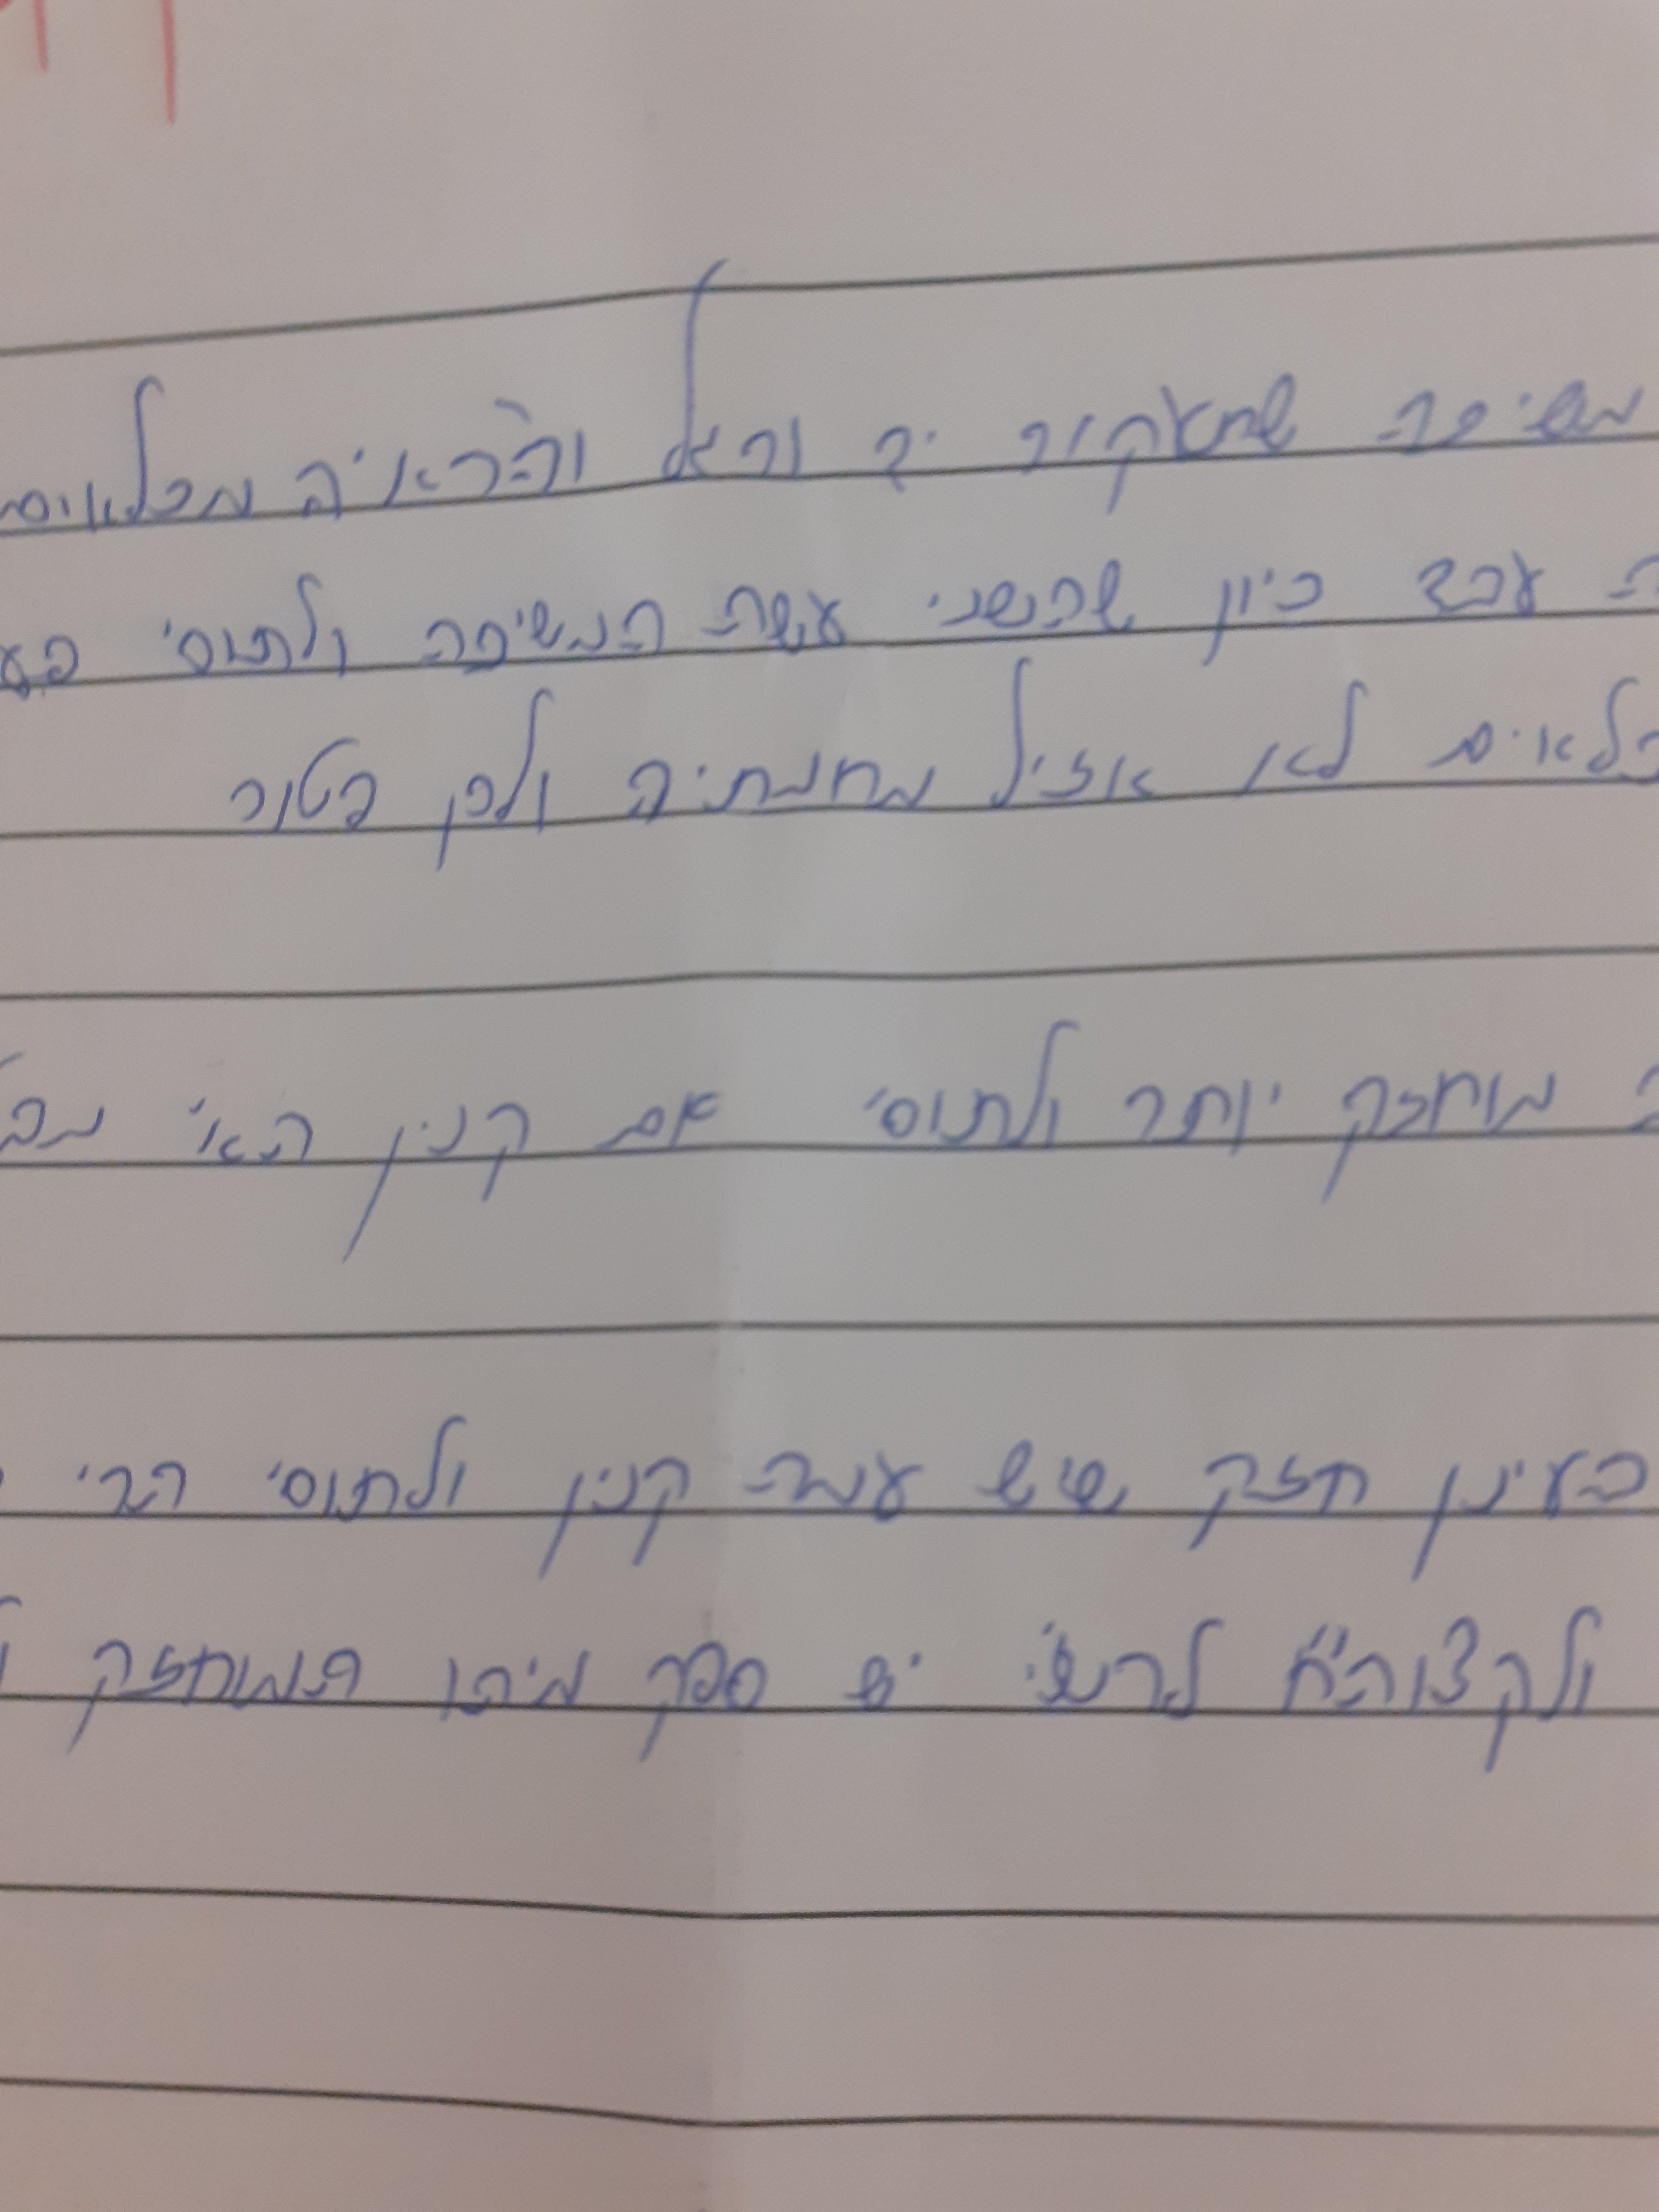 משיכה שתעקור יד ורגל והראיה מכלאים
עבד כיון שהשני עשה המשיכה ולתוס'
כלאים לא אזיל מחמתיה ולכן פטור
מוחזק יותר ולתוס' אם קנין הא'
בעינן חזק שיש עמה קנין ולתוס' הרי
ולקצוה"ח לרש"י יש ספק מיהו המוחזק